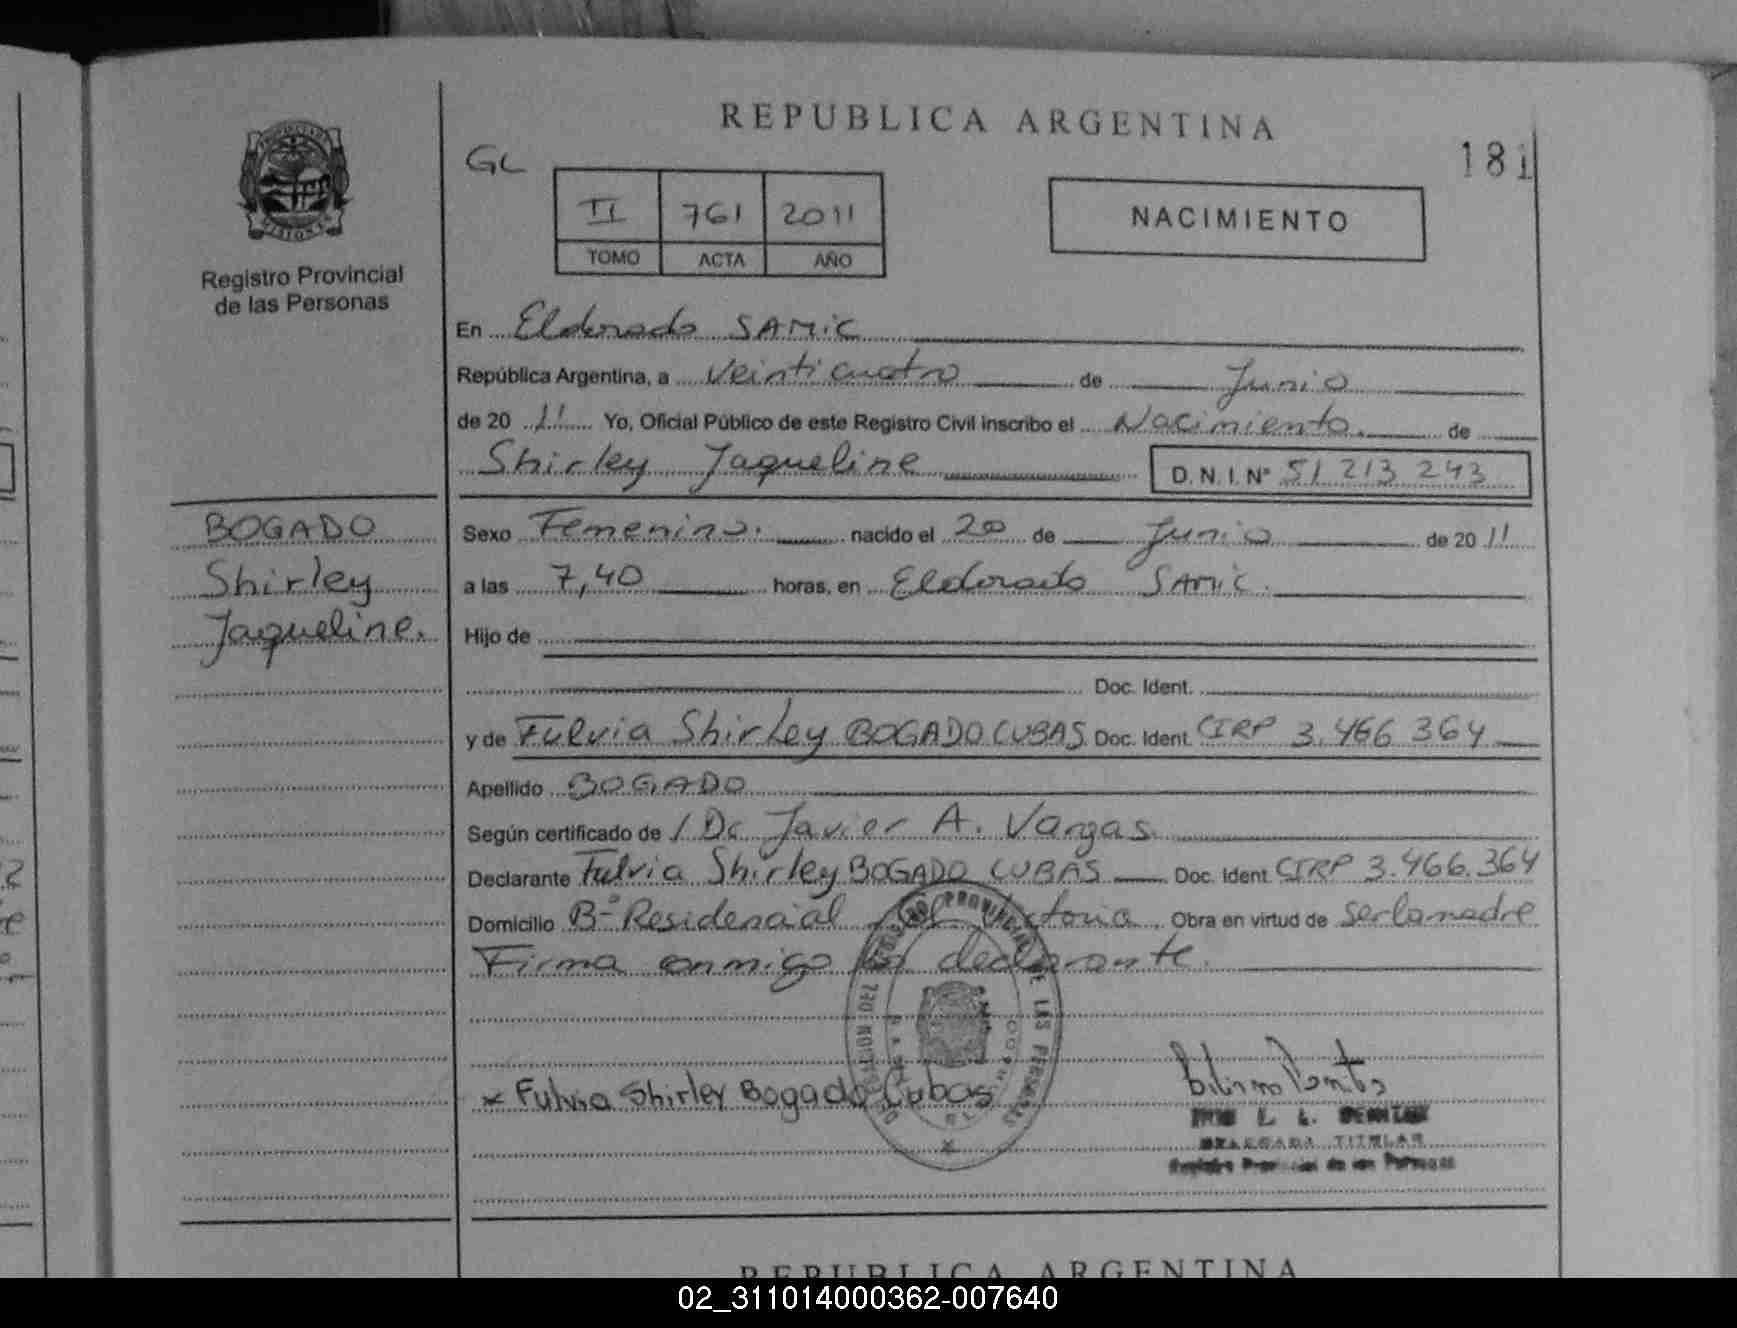 REPUBLICA ARGENTINA
181
GL
II 761 2011
TOMO ACTA AÑO
NACIMIENTO
MISIONES
Registro Provincial
de las Personas
En Eldorado SAMIC
República Argentina, a Veinticuatro de Junio
de 2011 Yo, Oficial Público de este Registro Civil inscribo el Nacimiento. de
Shirley Jaqueline D.N.I.Nº 51 213 243
BOGADO
Shirley
Jaqueline.
Sexo Femenino. nacido el 20 de Junio de 2011
a las 7,40 horas, en Eldorado SAMIC.
Hijo de
Doc. Ident.
y de Fulvia Shirley BOGADO CUBAS Doc. Ident. CIRP 3.466 364
Apellido BOGADO
Según certificado de / Dr Javier A. Vargas
Declarante Fulvia Shirley BOGADO CUBAS Doc. Ident. CIRP 3.466.364
Domicilio Bº Residencial Victoria Obra en virtud de ser la madre
Firma conmigo la declarante.
PROVINCIAL DE LAS PERSONAS
* Fulvia Shirley Bogado Cubas
DELEGADA TITULAR
Registro Provincial de las Personas
REPUBLICA ARGENTINA
02_311014000362-007640